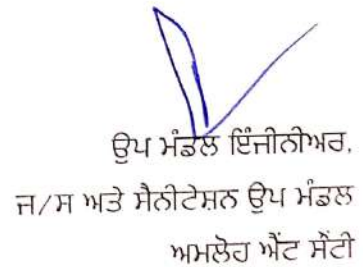 ਉਪ ਮੰਡਲ ਇੰਜੀਨੀਅਰ,
ਜ/ਸ ਅਤੇ ਸੈਨੀਟੇਸ਼ਨ ਉਪ ਮੰਡਲ
ਅਮਲੋਹ ਐਂਟ ਸੌਂਟੀ